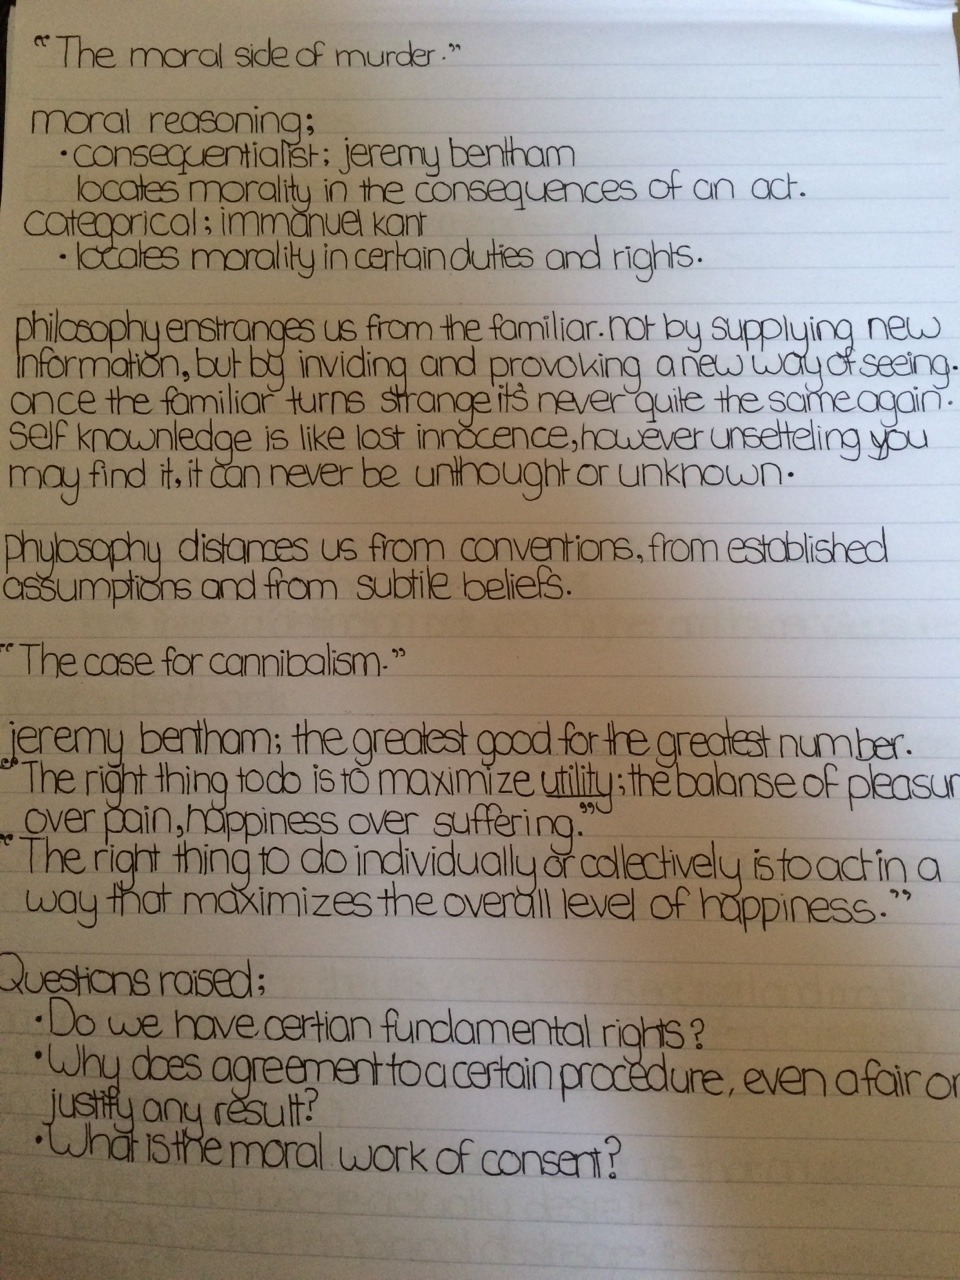 "The moral side of murder."
moral reasoning;
• consequentialist; jeremy bentham
locates morality in the consequences of an act.
categorical; immanuel kant
• locates morality in certain duties and rights.
philosophy enstranges us from the familiar. not by supplying new
information, but by inviding and provoking a new way of seeing.
once the familiar turns strange it's never quite the same again.
self knownledge is like lost innocence, however unsetteling you
may find it, it can never be unthought or unknown.
phylosophy distances us from conventions, from established
assumptions and from subtile beliefs.
"The case for cannibalism."
jeremy bentham; the greatest good for the greatest number.
"The right thing to do is to maximize utility; the balanse of pleasur
over pain, happiness over suffering."
"The right thing to do individually or collectively is to act in a
way that maximizes the overall level of happiness."
Questions raised;
• Do we have certian fundamental rights?
• Why does agreement to a certain procedure, even a fair on
justify any result?
• What is the moral work of consent?